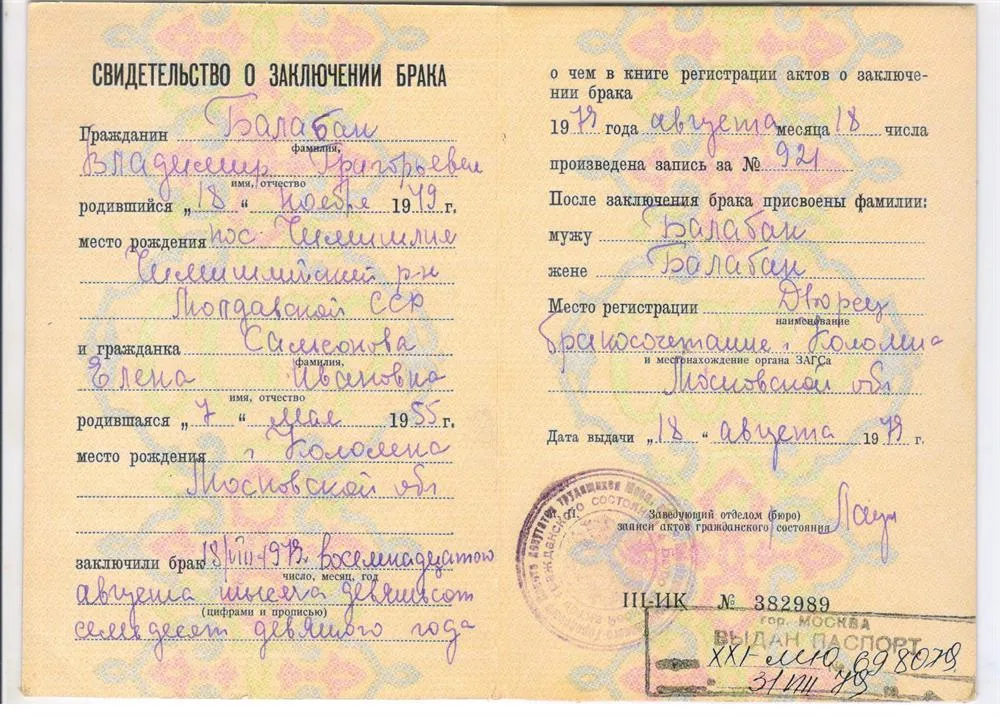 СВИДЕТЕЛЬСТВО О ЗАКЛЮЧЕНИИ БРАКА
Гражданин Балабан
фамилия,
Владимир Григорьевич
имя, отчество
родившийся „18“ ноября 1949 г.
место рождения пос Чимишлия
Чимишлийский р-н
Молдавской ССР
и гражданка Самсонова
фамилия,
Елена Ивановна
имя, отчество
родившаяся „7“ мая 1955 г.
место рождения г Коломна
Московской обл
заключили брак 18/VIII-1979 восемнадцатого
число, месяц, год
августа тысяча девятьсот
(цифрами и прописью)
семьдесят девятого года
о чем в книге регистрации актов о заключе-
нии брака
1979 года августа месяца 18 числа
произведена запись за № 921
После заключения брака присвоены фамилии:
мужу Балабан
жене Балабан
Место регистрации Дворец
наименование
бракосочетание г Коломна
и местонахождение органа ЗАГСа
Московской обл
Дата выдачи „18“ августа 1979 г.
Заведующий отделом (бюро)
записи актов гражданского состояния
III-ИК № 382989
гор. МОСКВА
ВЫДАН ПАСПОРТ
XXI-МЮ № 698079
31 VIII 79